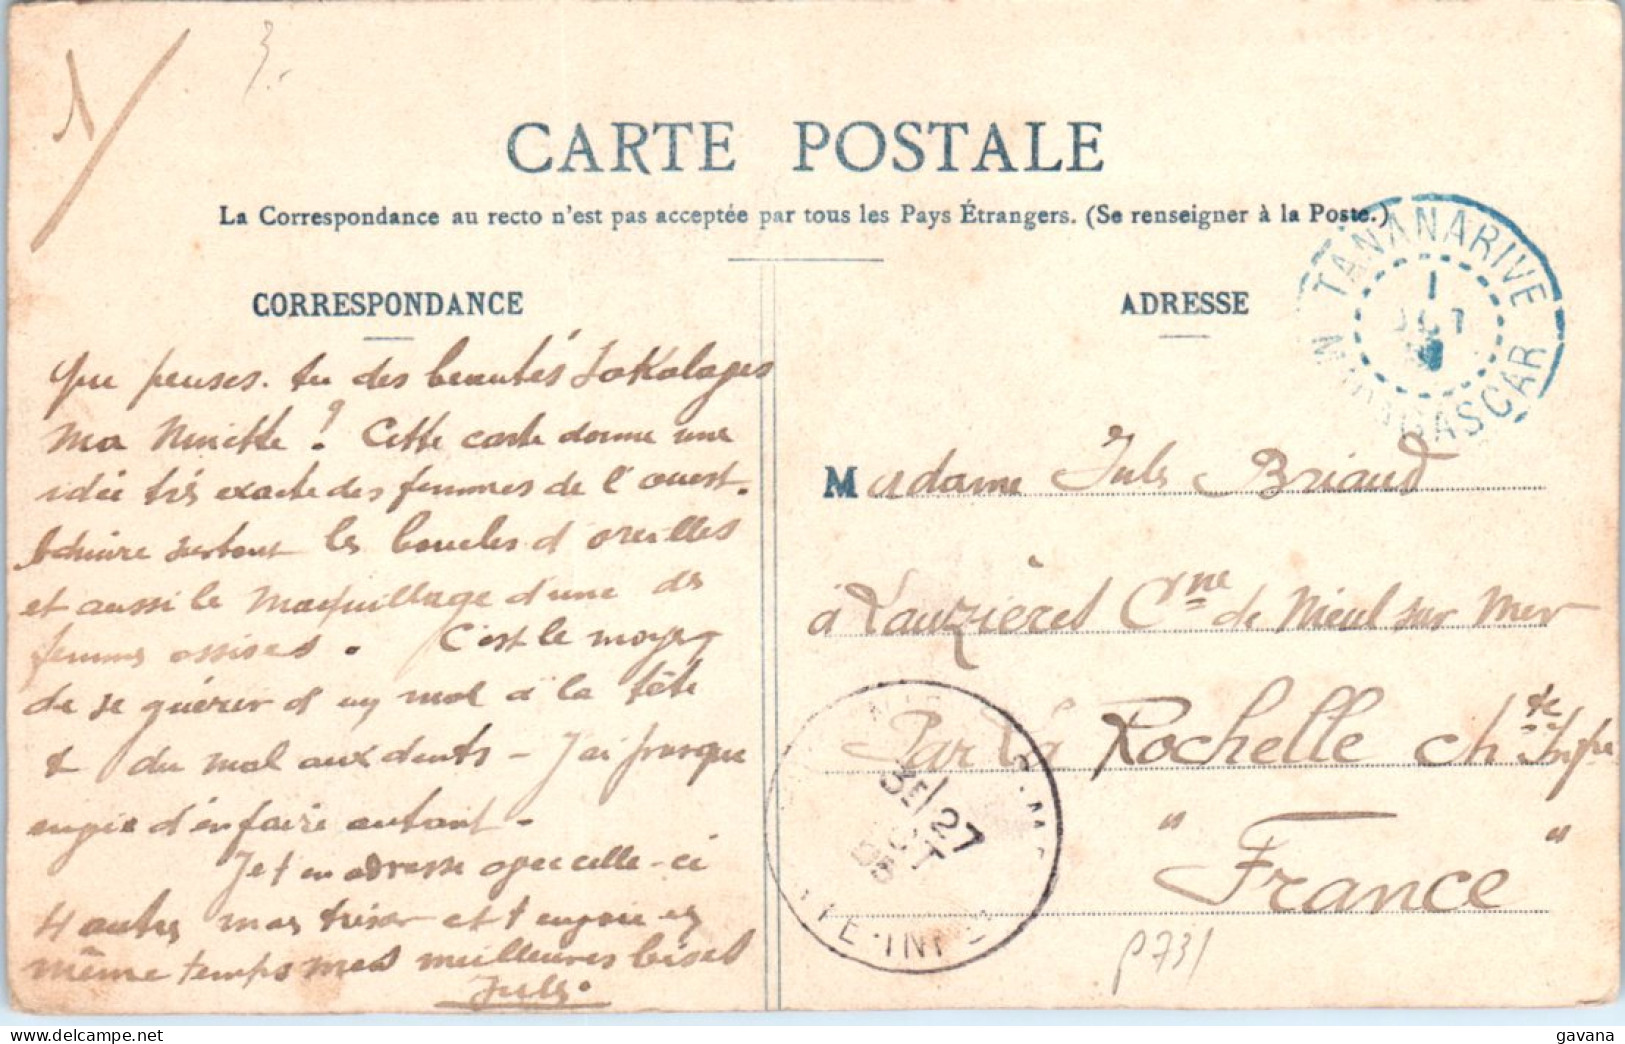 1
3.
CARTE POSTALE
La Correspondance au recto n'est pas acceptée par tous les Pays Étrangers. (Se renseigner à la Poste.)
TANANARIVE
1
OCT
MADAGASCAR
CORRESPONDANCE
ADRESSE
Que penses-tu des beautés Sakalaves
Ma Ninette ? Cette carte donne une
idée très exacte des femmes de l'ouest.
Admire surtout les boucles d'oreilles
et aussi le maquillage d'une des
femmes assises. C'est le moyen
de se guérir d'un mal à la tête
& du mal aux dents - J'ai presque
envie d'en faire autant -
Je t'en adresse avec celle-ci
4 autres mon trésor et t'envoie en
même temps mes meilleures bises
Jules.
Madame Jules Briaud
à Lauzières Cne de Nieul sur Mer
Par La Rochelle Chte Infre
" France "
27
OCT
TE-INF
p731
gavana